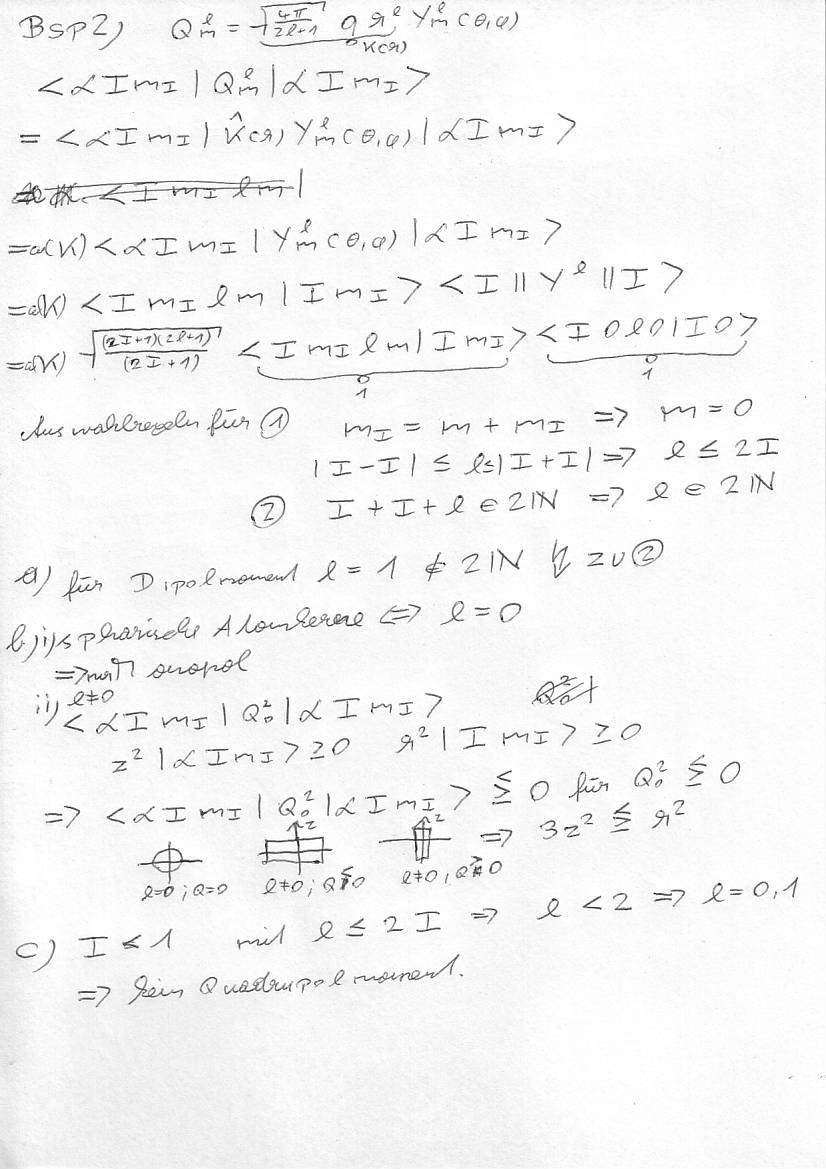 Bsp2) Q^l_m = √(4π/(2l+1)) q r^l Y^l_m(θ,φ)
K(r)
<α I m_I | Q^l_m | α I m_I>
= <α I m_I | K̂(r) Y^l_m(θ,φ) | α I m_I>
<I m_I l m |
=α(K) <α I m_I | Y^l_m(θ,φ) | α I m_I>
=α(K) <I m_I l m | I m_I> <I || Y^l || I>
=α(K) √((2I+1)(2l+1)/(2I+1)) <I m_I l m | I m_I> <I 0 l 0 | I 0>
1 1
Auswahlregeln für ① m_I = m + m_I => m = 0
|I-I| ≤ l ≤ |I+I| => l ≤ 2I
② I + I + l ∈ 2ℕ => l ∈ 2ℕ
a) für Dipolmoment l = 1 ∉ 2ℕ ↯ zu ②
b) i) sphärische Atomkerne <=> l = 0
=> nur Monopol
ii) l≠0
<α I m_I | Q^2_0 | α I m_I> Q^2_0
z² | α I m_I> ≥ 0 r² | I m_I> ≥ 0
=> <α I m_I | Q^2_0 | α I m_I> ≶ 0 für Q^2_0 ≶ 0
z z => 3z² ≶ r²
l=0 ; Q=0 l≠0 ; Q<0 l≠0 ; Q>0
c) I < 1 mit l ≤ 2I => l < 2 => l = 0,1
=> kein Quadrupolmoment.